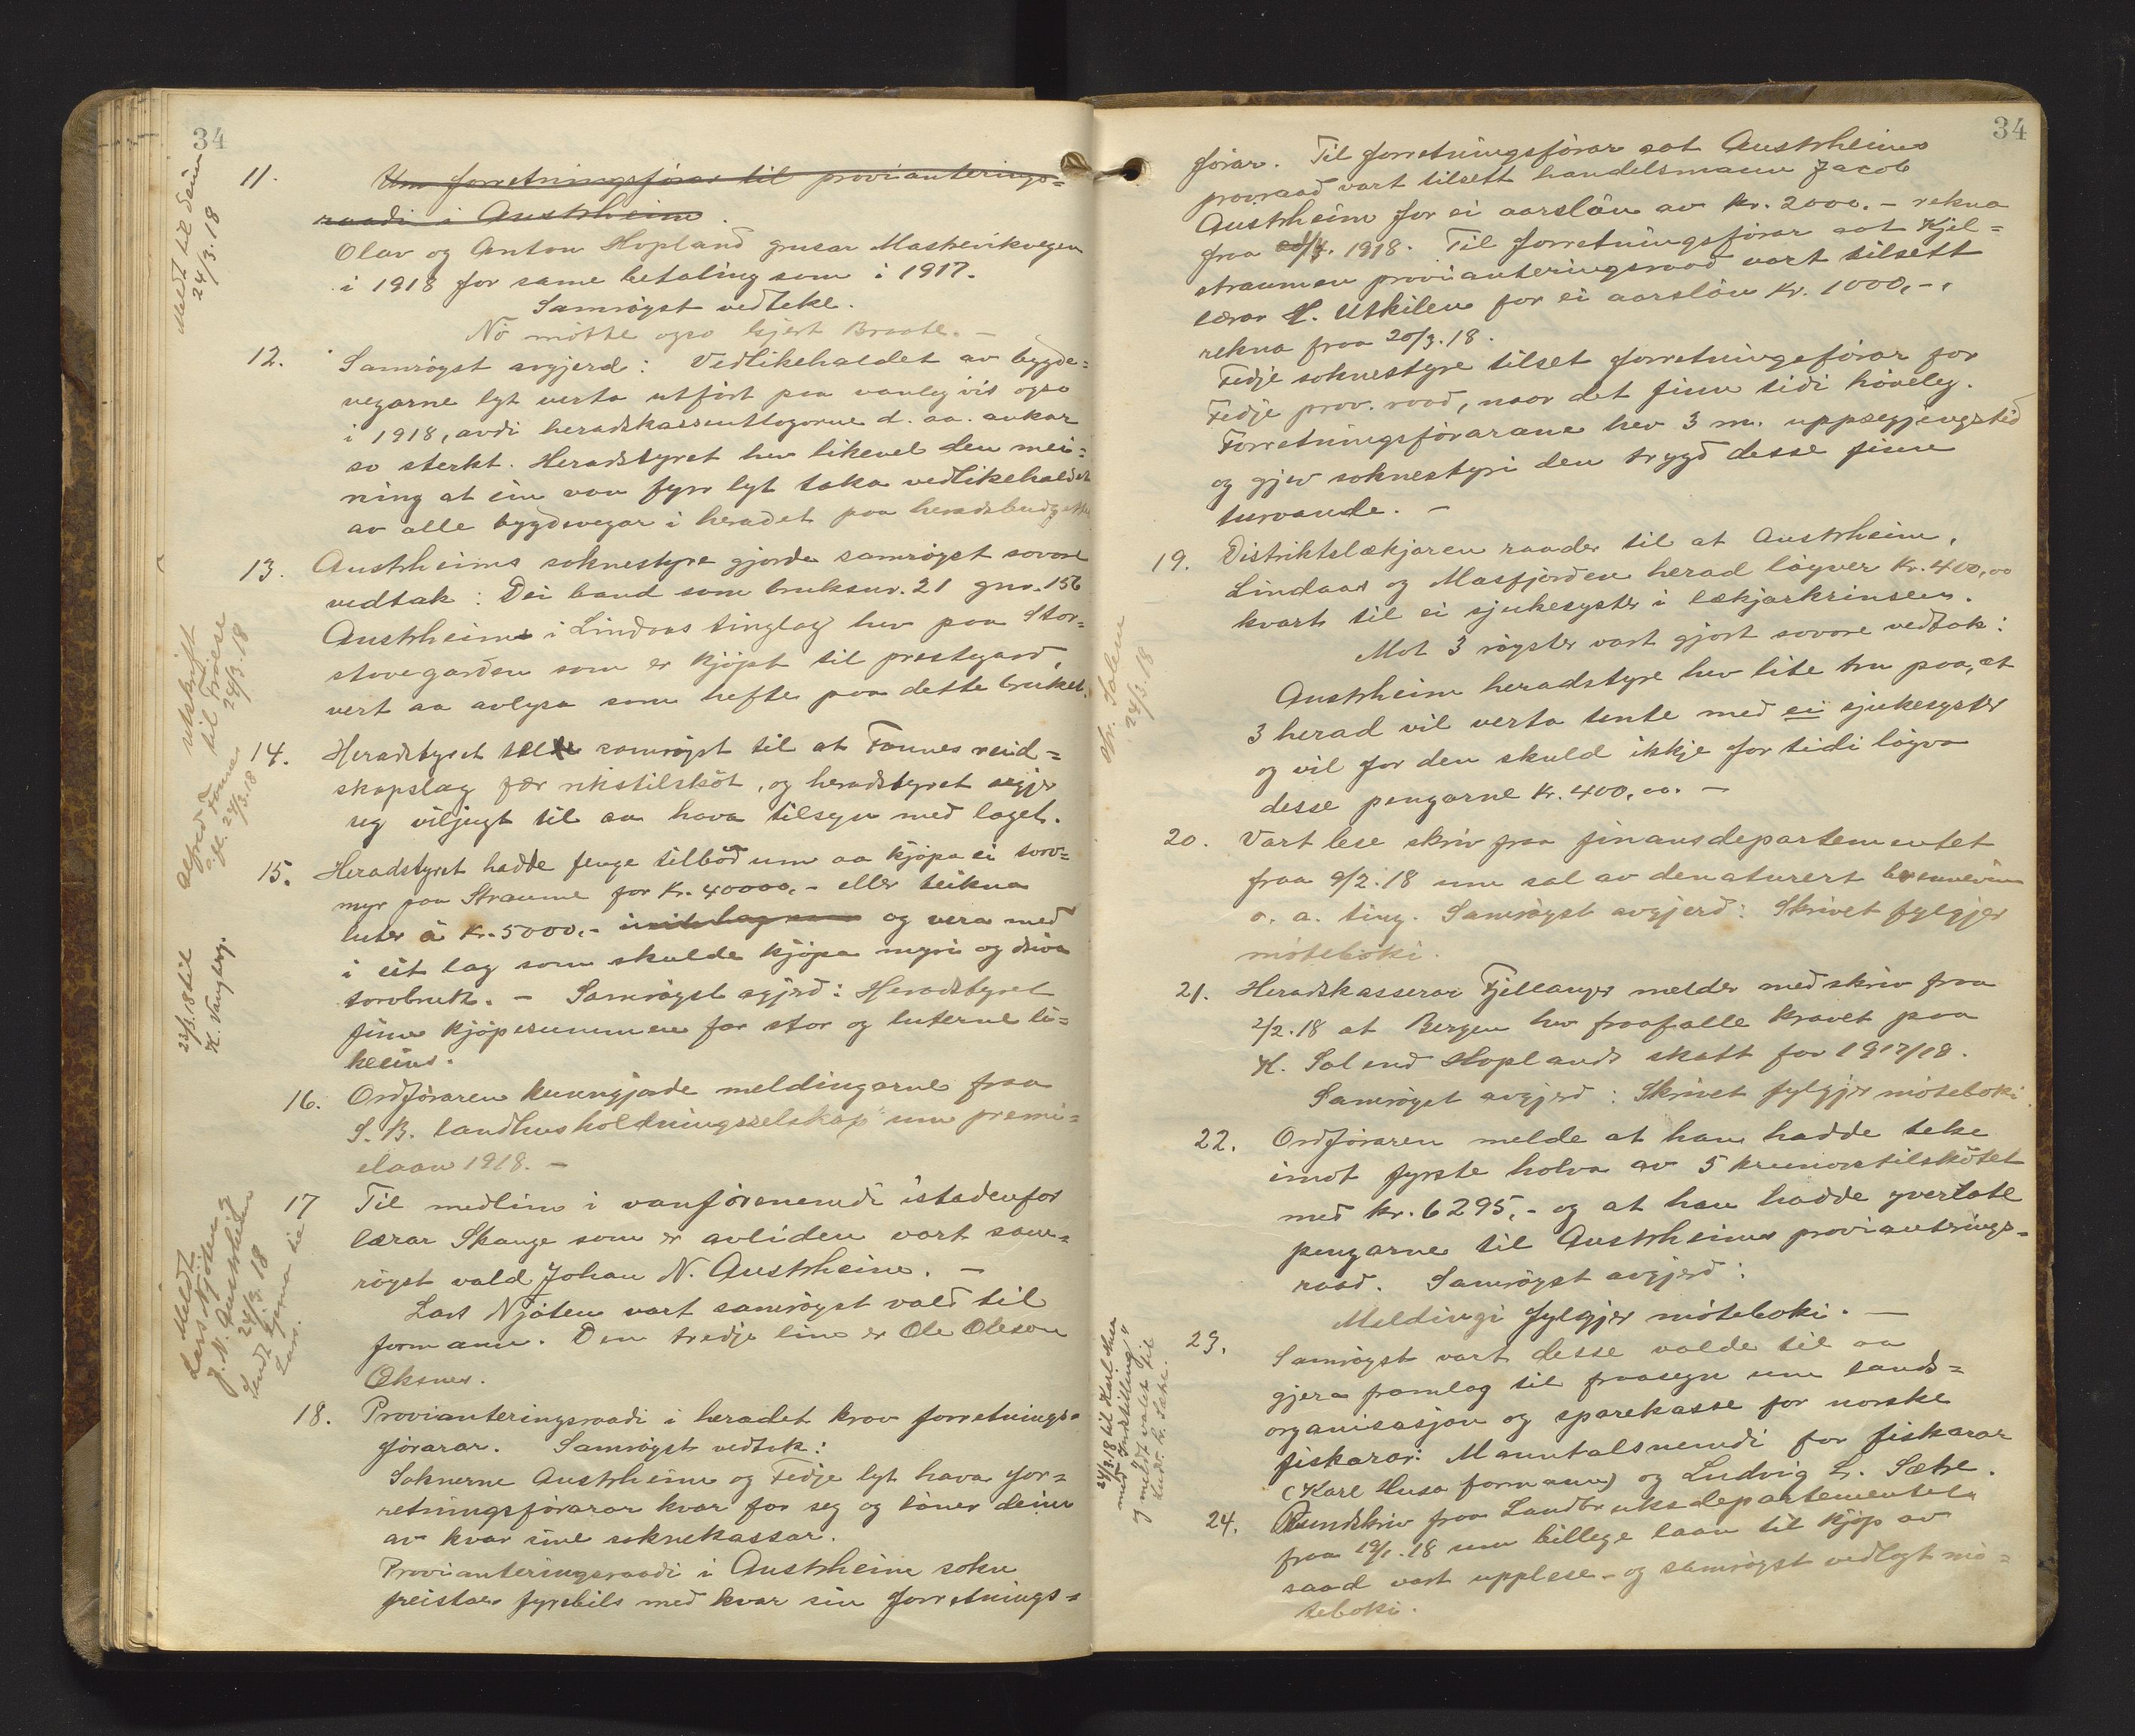 34
11. Um forretningsførar til provianterings=
raadi i Austrheim.
Olav og Anton Hopland grusar Mastrevikvegen
i 1918 for same betaling som i 1917.
Samrøyst vedteke.
No møtte ogso Gjert Braate. —
Meldt til deim
24/3.18
12. Samrøyst avgjerd: Vedlikehaldet av bygde=
vegarne lyt verta utført paa vanleg vis ogso
i 1918, avdi heradskassautlogorne d. aa. aukar
so sterkt. Heradstyret hev likevel den mei=
ning at ein von fyrr lyt taka vedlikehaldet
av alle bygdevegar i heradet paa heradsbudgettet
13. Austrheims soknestyre gjorde samrøyst sovore
vedtak: Dei band som bruksnr. 21 gnr. 156
Austrheim i Lindaas tinglag hev paa Stor=
stovegarden som er kjøpt til prestegard,
vert aa avlysa som hefte paa dette bruket.
utskrift
til
24/3.18
14. Heradstyret samrøyst til at Fonnes reid=
skapslag fær rikstilskot, og heradstyret segjer
seg viljugt til aa hava tilsyn med laget.
Alfred Fonnes
24/3.18
15. Heradstyret hadde fenge tilbod um aa kjøpa ei torv=
myr paa Straume for Kr. 40000,- eller teikna
luter à Kr. 5000,- og vera med
i eit lag som skulde kjøpa myri og driva
torvbruk. — Samrøyst agjerd: Heradstyret
finn kjøpesummen for stor og luterne li=
keeins.
23/3.18 til
K. Vangberg.
16. Ordføraren kunngjorde meldingarne fraa
S. B. landhusholdningsselskap um premi=
elaan 1918. —
17 Til medlim i vanførenemdi istadenfor
lærar Skauge som er avliden vart sam=
røyst vald Johan N. Austrheim. —
Lars Njøten vart samrøyst vald til
formann. Den tredje lim er Ole Oleson
Øksnes.
Meldt
Lars Njøten og
J. N. Austrheim
24/3.18
18. Provianteringsraadi i heradet krov forretnings=
førarar. Samrøyst vedtak:
Soknerne Austrheim og Fedje lyt hava for=
retningsførarar kvar for seg og løner deim
av kvar sine soknekassar.
Provianteringsraadi i Austrheim sokn
freistar fyrebils med kvar sin forretnings=
34
førar. Til forretningsførar aat Austrheims
provraad vart tilsett handelsmann Jacob
Austrheim for ei aarsløn av kr. 2000.- rekna
fraa 1918. Til forretningsførar aat Kjel=
straumen provianteringsraad vart tilsett
lærar H. Utkilen for ei aarsløn Kr. 1000,-,
rekna fraa 20/3.18.
Fedje soknestyre tilset forretningsførar for
Fedje prov. raad, naar det finn tidi høveleg.
Forretningsførarane hev 3 m. uppsegjingstid
og gjev soknestyri den trygd desse finn
turvande. —
19. Distriktslækjaren raader til at Austrheim,
Lindaas og Masfjorden herad løyver Kr. 400,00
kvart til ei sjukesyster i lækjarkrinsen.
Mot 3 røyster vart gjort sovore vedtak:
Austrheim heradstyre hev lite tru paa, at
3 herad vil verta tente med ei sjukesyster
og vil for den skuld ikkje for tidi løyva
desse pengarne Kr. 400,00. —
24/3.18
20. Vart lese skriv fraa finansdepartementet
fraa 9/2.18 um sal av denaturert brennevin
o. a. ting. Samrøyst avgjerd: Skrivet fylgjer
møteboki.
21. Heradskasserar Fjellanger melder med skriv fraa
2/2.18 at Bergen hev fraafalle kravet paa
K. Salend Hoplands skatt for 1917/18.
Samrøyst avgjerd: Skrivet fylgjer møteboki.
22. Ordføraren melde at han hadde teke
imot fyrste holva av 5 kronorstilskotet
med kr. 6295,- og at han hadde yverlate
pengarne til Austrheims provianterings-
raad. Samrøyst avgjerd:
Meldingi fylgjer møteboki. —
23. Samrøyst vart desse valde til aa
gjera framlag til fraasegn um lands=
organisasjon og sparekasse for norske
fiskarar: Manntalsnemdi for fiskarar
(Karl Husa formann) og Ludvig L. Sætre.
24/3.18 til Karl Husa
med "Innstilling"
og meldt valet til
Ludv. L. Sætre.
24. Rundskriv fraa Landbruksdepartementet
fraa 19/1.18 um billege laan til kjøp av
saad vart upplese - og samrøyst vedlagt mø=
teboki.